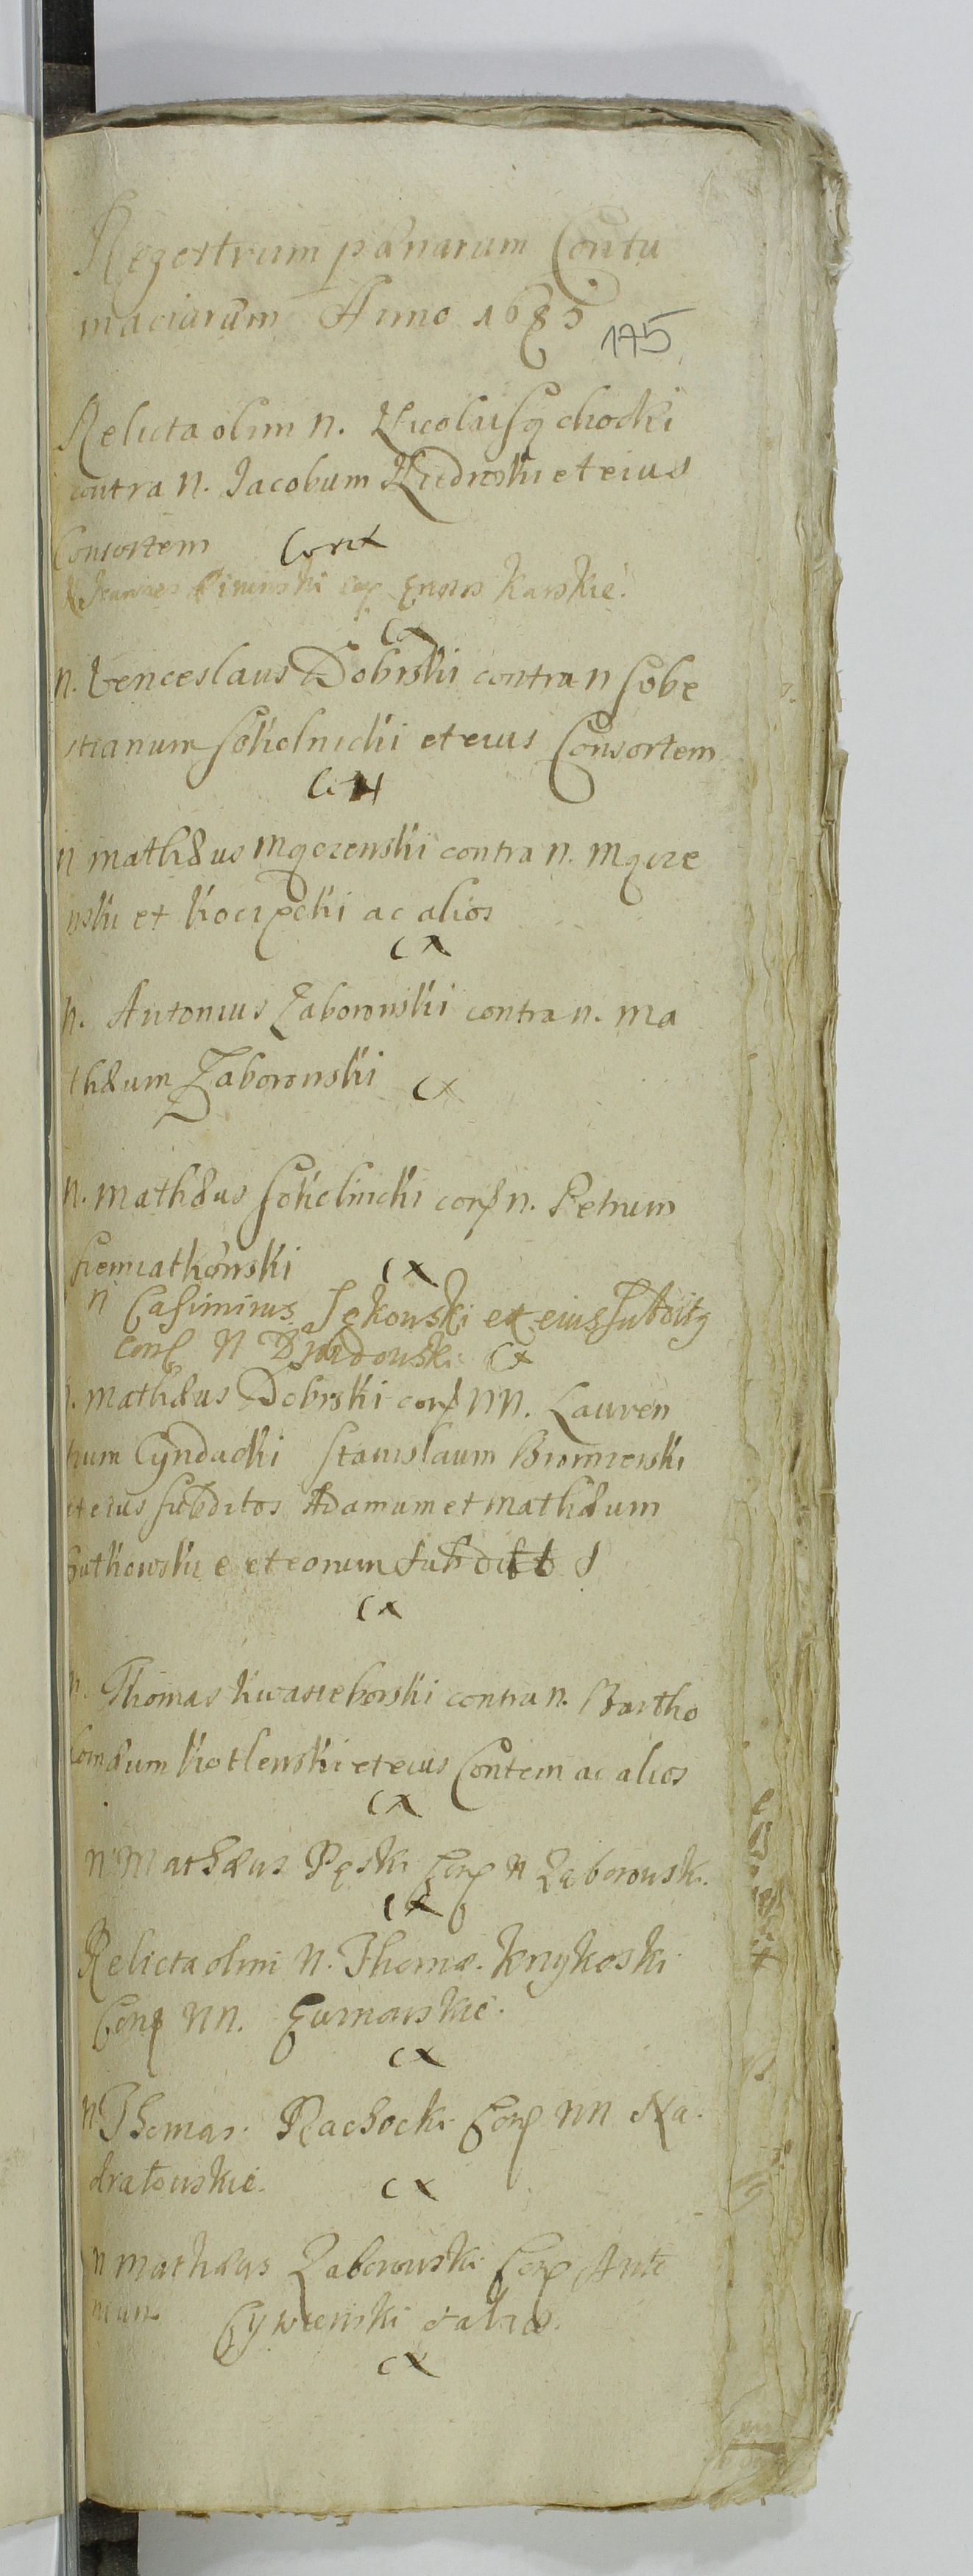 Regestrum pænarum Contu
maciarum Anno 1685
175
Relicta olim N. Nicolai Sęchocki
contra N. Jacobum et eius
Consortem Con
N Joannes Karskie
Cx
N. Venceslaus Dobrski contra N Seba
stianum Sokolnicki et eius Consortem
N Mathæus Mąozenski contra N. Mąoze
nski et ac alios
Cx
N. Antonius Zaborowski contra N. Ma
thæum Zaborowski Cx
N. Mathæus Sokolnicki con N. Petrum
Siemiatkowski Cx
N Casimirus Jękowski et eius Subdits
con N Cx
N. Mathæus Dobrski con NN. Lauren
tium Cyndacki Stanislaum Bromierski
et eius Subditos Adamum et Mathæum
Gutkowskie et eorum Subdittos
Cx
N. Thomas Kwasieborski contra N. Bartho
lomæum Kotlenski et eius Contem ac alios
Cx
N Mathæus Pęski Con N Zaborowski
Cx
Relicta olim N. Thomæ Knykoski
Con NN. Garnarskie
Cx
N Thomas Rachocki Con NN Na
dratowskie Cx
N Mathæus Zaborowski Con Anto
nium Cywienski et alios
Cx